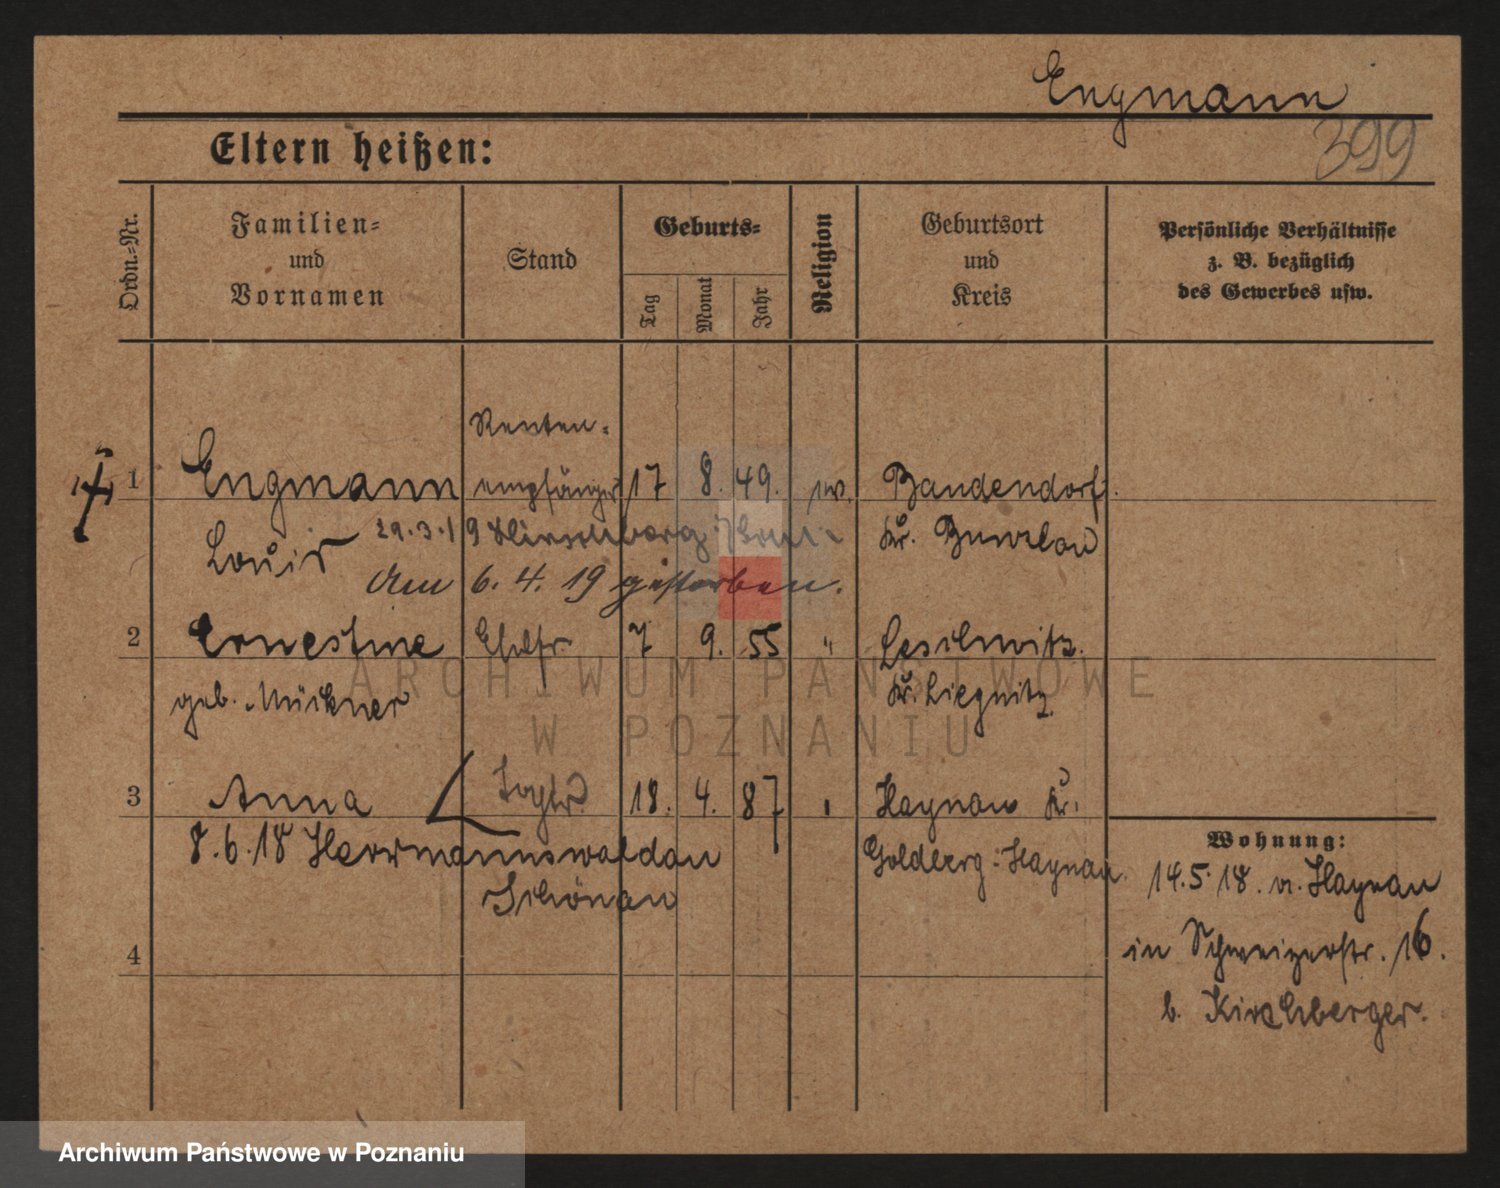 Engmann
399
Eltern heißen:
Ordn.-Nr.
Familien-
und
Vornamen
Stand
Geburts-
Tag
Monat
Jahr
Religion
Geburtsort
und
Kreis
Persönliche Verhältnisse
z. B. bezüglich
des Gewerbes usw.
Renten-
1 Engmann empfänger 17 8. 49. Baudendorf.
Louis 29.3.19 Hirschberg Kr. Bunzlau
Am 6. 4. 19 gestorben.
2 Ernestine Ehefr 7 9. 55 " Leschwitz.
geb. Mückner Kr. Liegnitz
3 Anna Tochtr. 18. 4. 87 " Haynau Kr.
8.6.18 Herrmannswaldau Goldberg-Haynau.
Schönau
4
Wohnung:
14.5.18. v. Haynau
in Schweizerstr. 16.
b. Kirchberger.
ARCHIWUM PAŃSTWOWE
W POZNANIU
Archiwum Państwowe w Poznaniu